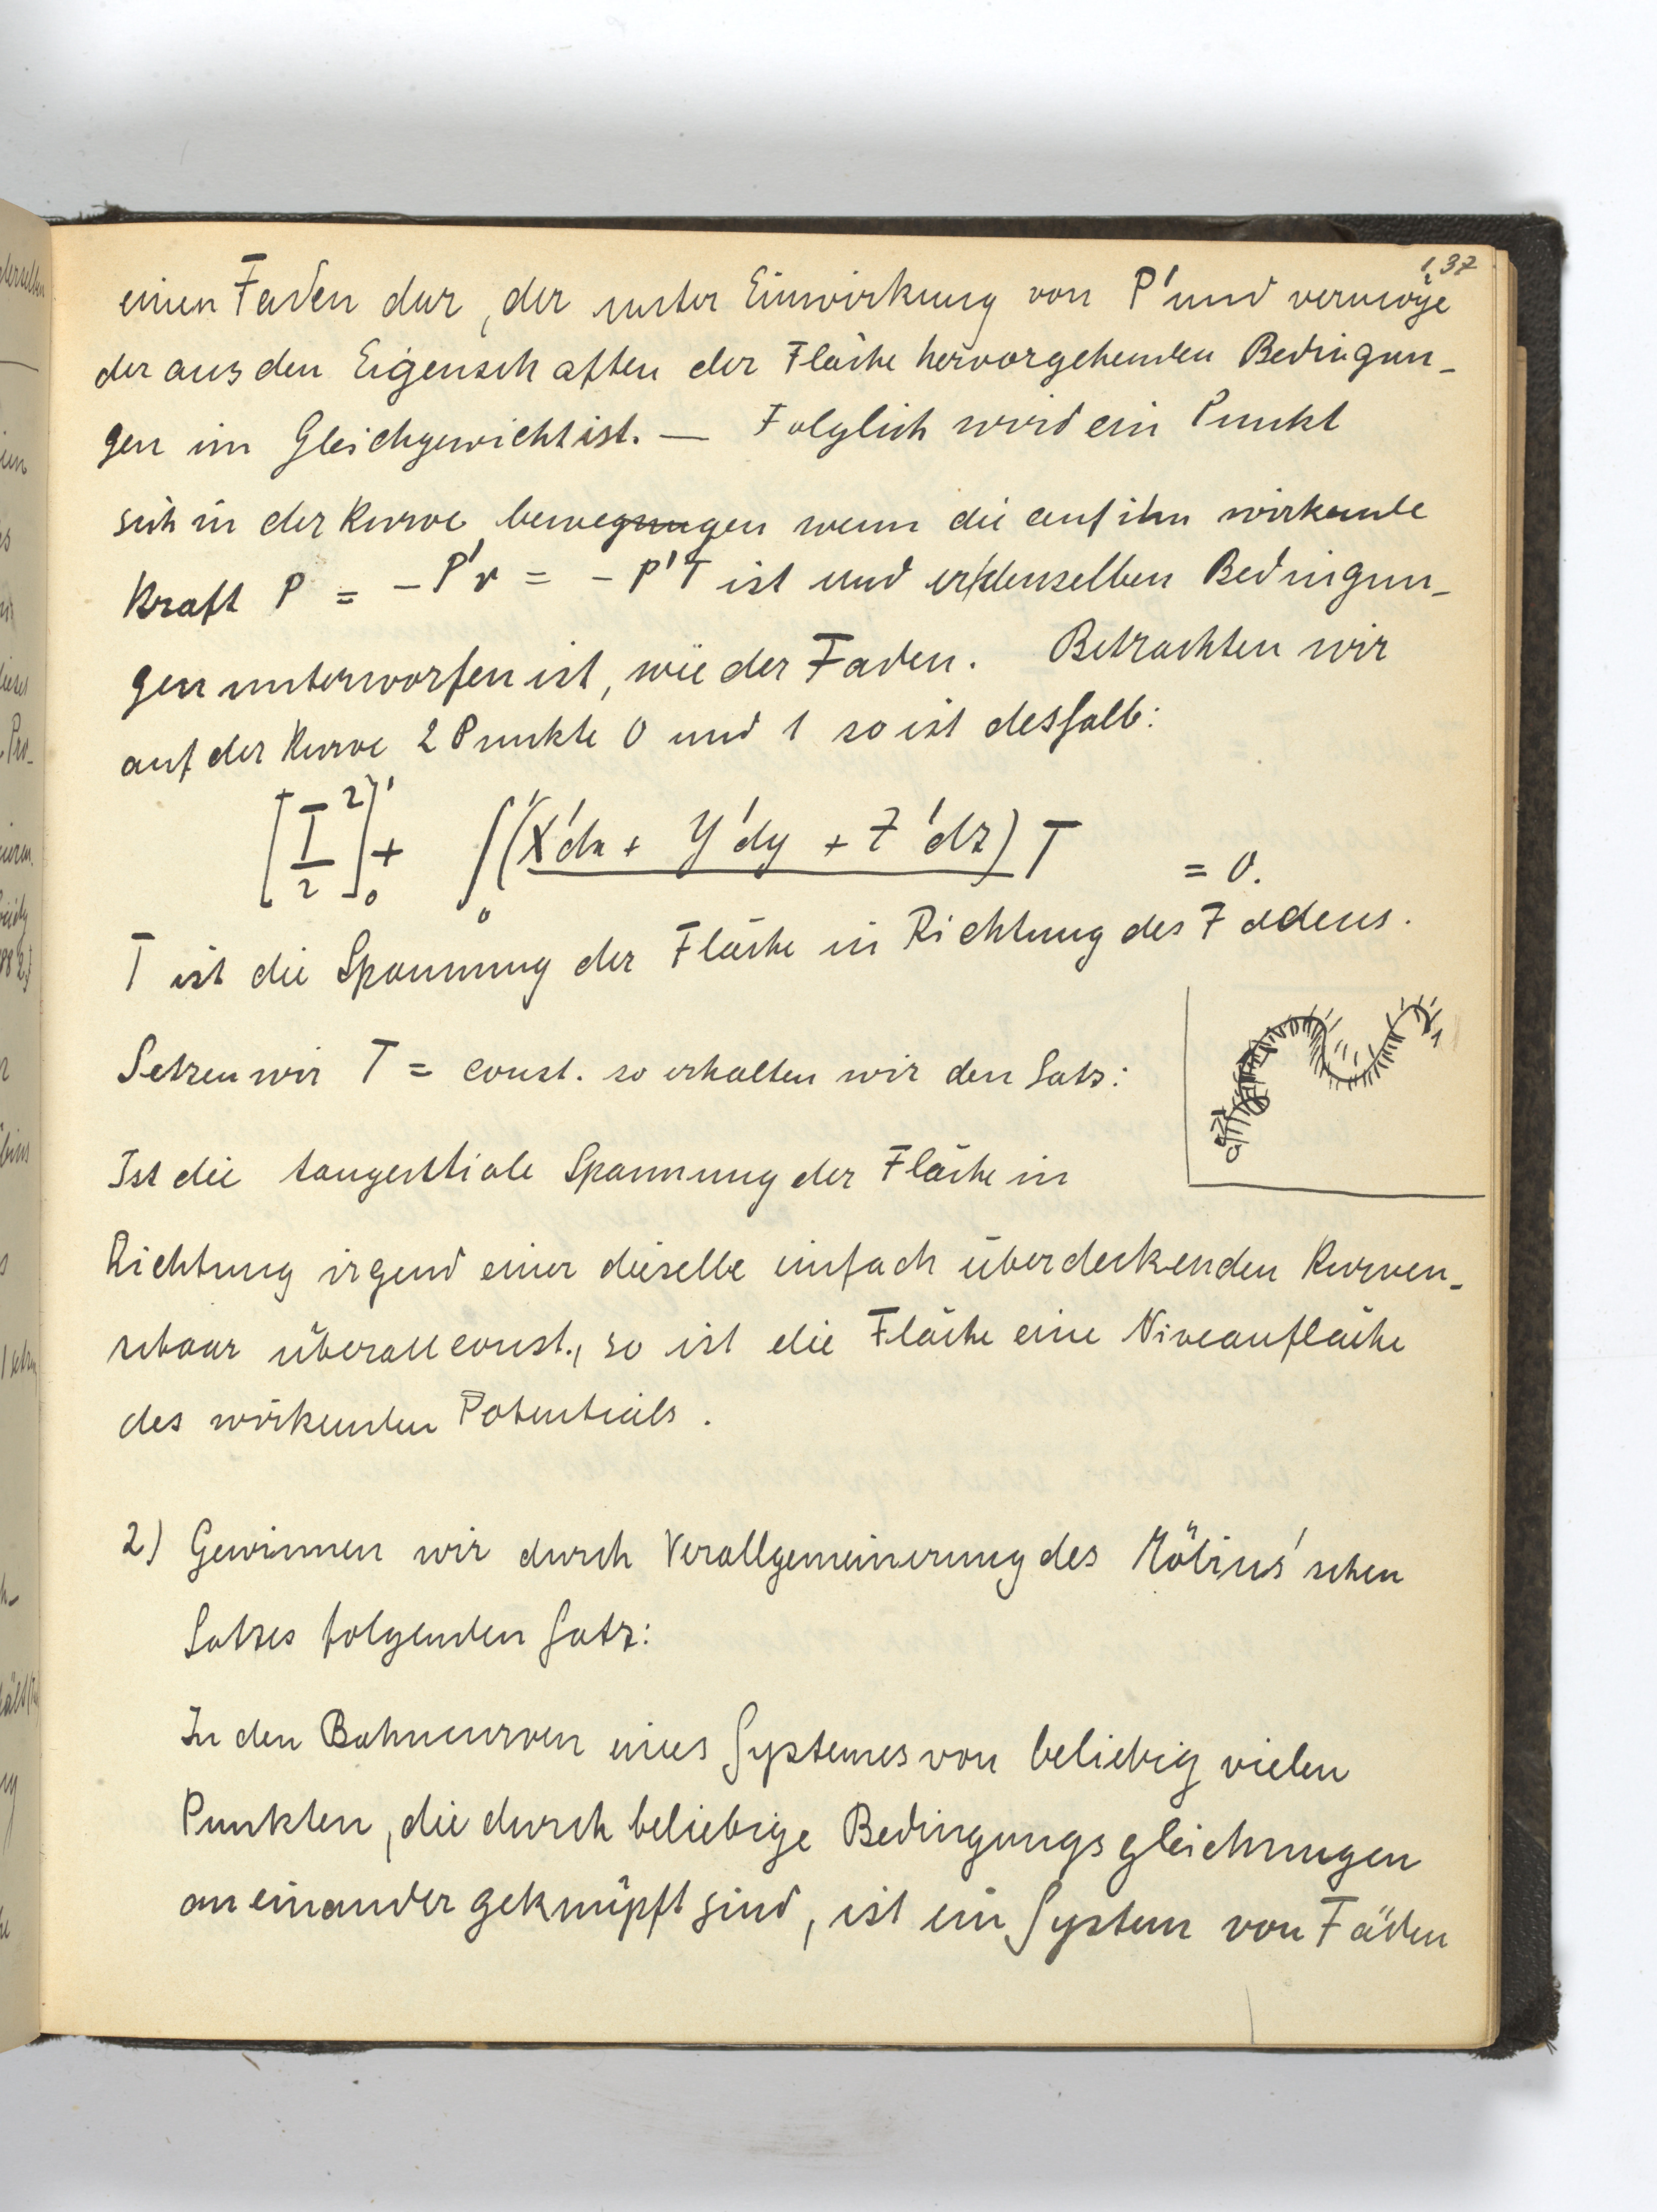 137
einen Faden dar, der unter Einwirkung von P' und vermöge
der aus den Eigenschaften der Fläche hervorgehenden Bedingun-
gen im Gleichgewicht ist. — Folglich wird ein Punkt
sich in der Kurve bewegen wenn die auf ihn wirkende
Kraft P = -P'v = -P'T ist und er denselben Bedingun-
gen unterworfen ist, wie der Faden. Betrachten wir
auf der Kurve 2 Punkte 0 und 1 so ist deshalb:
[T²/2]₀¹ + ∫₀¹ (X'dx + Y'dy + Z'dz) T = 0.
T ist die Spannung der Fläche in Richtung des Fadens.
Setzen wir T = const. so erhalten wir den Satz:
1
0
Ist die tangentiale Spannung der Fläche in
Richtung irgend einer dieselbe einfach überdeckenden Kurven-
schaar überall const., so ist die Fläche eine Niveaufläche
des wirkenden Potentials.
2) Gewinnen wir durch Verallgemeinerung des Möbius'schen
Satzes folgenden Satz:
In den Bahncurven eines Systemes von beliebig vielen
Punkten, die durch beliebige Bedingungsgleichungen
an einander geknüpft sind, ist ein System von Fäden